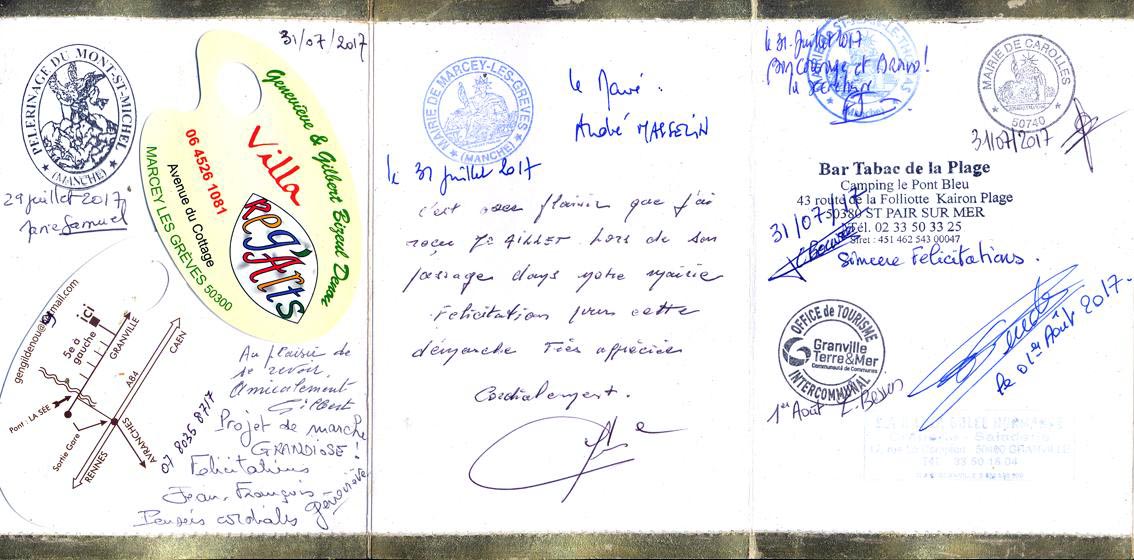 PELERINAGE DU MONT-ST-MICHEL
(MANCHE)
29 juillet 2017
31/07/2017
Geneviève & Gilbert Bizeul Denu
Villa
Reg'Arts
06 4526 1081
Avenue du Cottage
MARCEY LES GRÈVES 50300
gengildenou@gmail.com
ici
5e à
gauche
GRANVILLE
CAEN
A84
Pont : LA SÉE
Sortie Gare
AVRANCHES
RENNES
07 8036 8717
Au plaisir de
se revoir.
Amicalement
Gilbert
Projet de marche
GRANDIOSE !
Félicitations
Jean-François
Pensées cordiales Geneviève
MAIRIE DE MARCEY-LES-GRÈVES
(MANCHE)
le Maire :
André MASSELIN
le 31 juillet 2017
c'est avec plaisir que j'ai
reçu Mr GILLET lors de son
passage dans notre mairie
Félicitation pour cette
démarche très appréciée
Cordialement.
le 31 juillet 2017
Bon courage et BRAVO !
la secrétaire
(Manche)
MAIRIE DE CAROLLES
50740
31/07/2017
Bar Tabac de la Plage
Camping le Pont Bleu
43 route de la Folliotte Kairon Plage
50380 ST PAIR SUR MER
Tél. 02 33 50 33 25
Siret : 451 462 543 00047
31/07/17
Sincère Félicitations.
OFFICE de TOURISME
Granville
Terre&Mer
Communauté de Communes
INTERCOMMUNAL
1er Août
Le 01er Août 2017.
50400 GRANVILLE